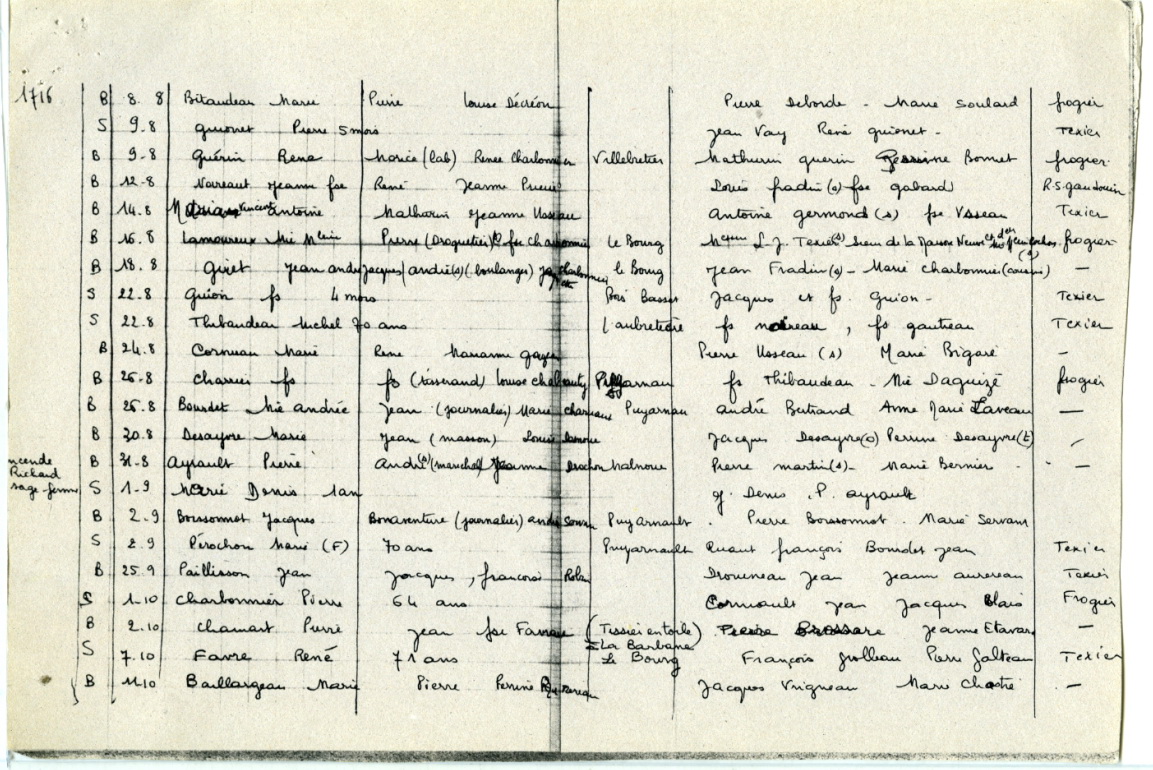 1716
B 8. 8 Bitaudeau Marie Pierre Louise Décréon Pierre Deborde - Marie Soulard frogier
S 9.8 guionet Pierre 5 mois Jean Vay René guionet - Texier
B 9-8 Guérin Rene (lab) Renee Charbonnier Villebretier Mathurin guerin Bonnet frogier
B 12-8 Jeanne fse René Jeanne Louis fradin (s) fse gabard R.S. gaudouin
B 14.8 Vincent antoine Mathurin Jeanne Usseau Antoine germond (s) fse Usseau Texier
B 16.8 Lamoureux Mie Pierre fse le Bourg L. J. Texier (s) Sieur de la Maison Neuve frogier
B 18.8 giret Jean andré Jacques andré (s) (boulanger) Charbonnier le Bourg Jean Fradin (s) - Marie Charbonnier (cousine) —
S 22-8 Guion fs 4 mois Bois Basset Jacques et fs. Guion - Texier
S 22.8 Thibaudeau Michel 70 ans fs , fs gautreau Texier
B 24.8 Cornuau Marie Rene Marianne Pierre Usseau (s) Marie Bigaré —
B 26-8 fs fs (tisserand) Louise fs Thibaudeau - Mie Daguizé frogier
B 26.8 Bourdet Mie andrée Jean (journalier) Marie Puyarnau andré Bertrand Anne Marie Laveau —
B 30.8 Desayvre Marie Jean (masson) Louise Jacques Desayvre Perrine Desayvre (t) -
ncende Richard sage-femme
B 31-8 Ayrault Pierre André (s) (marechal) Jeanne Pierre martin (s) - Marie Bernier - —
S 1-9 Marie Denis 1 an J. Denis , P. ayrault
B 2.9 Boussonnot Jacques Bonaventure (journalier) Puyarnault . Pierre Boussonnot . Marie Servant
S 2.9 Pérochon Marie (F) 70 ans Puyarnault Ruaut françois Bourdet Jean Texier
B 25.9 Paillisson Jean Jacques , françoise Robin Drouineau Jean Jeanne Texier
S 1-10 Charbonnier Pierre 64 ans Jean Jacques Blais Frogier
B 2.10 Chamart Pierre Jean fse (Tissier en toile) La Barbane Jeanne Etavard —
S 7.10 Favre René 71 ans Le Bourg François Pierre Texier
B 11.10 Baillargeau Marie Pierre Perrine Jacques Vrigneau Marie —